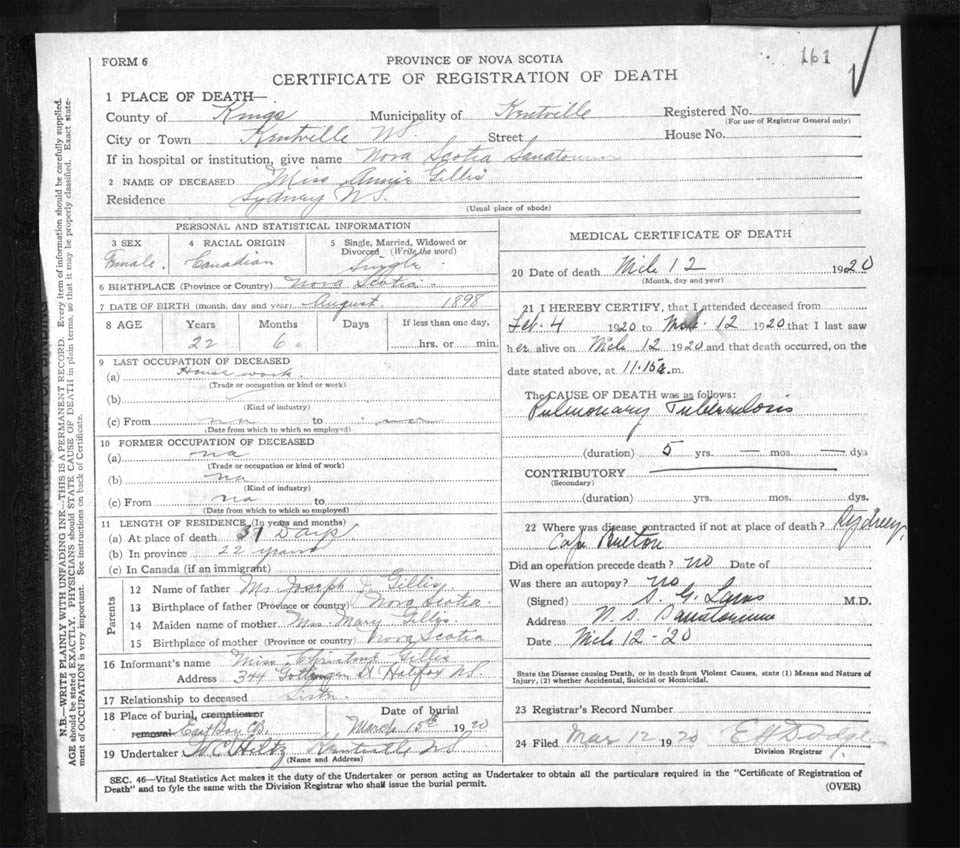 FORM 6
PROVINCE OF NOVA SCOTIA
161
CERTIFICATE OF REGISTRATION OF DEATH
1 PLACE OF DEATH—
County of Kings Municipality of Kentville Registered No.
(For use of Registrar General only)
City or Town Kentville N.S. Street House No.
If in hospital or institution, give name Nova Scotia Sanatorium
2 NAME OF DECEASED Miss Annie Gillis
Residence Sydney N.S.
(Usual place of abode)
PERSONAL AND STATISTICAL INFORMATION
3 SEX 4 RACIAL ORIGIN 5 Single, Married, Widowed or Divorced (Write the word)
Female. Canadian Single
6 BIRTHPLACE (Province or Country) Nova Scotia
7 DATE OF BIRTH (month, day and year) August 1898
8 AGE Years Months Days If less than one day,
22 6 hrs. or min.
9 LAST OCCUPATION OF DECEASED
(a) House work
(Trade or occupation or kind or work)
(b)
(Kind of industry)
(c) From na to na
(Date from which to which so employed)
10 FORMER OCCUPATION OF DECEASED
(a) na
(Trade or occupation or kind of work)
(b) na
(Kind of industry)
(c) From na to
(Date from which to which so employed)
11 LENGTH OF RESIDENCE (In years and months)
(a) At place of death 37 Days
(b) In province 22 years
(c) In Canada (if an immigrant)
Parents
12 Name of father Mr Joseph J Gillis
13 Birthplace of father (Province or country) Nova Scotia
14 Maiden name of mother Miss Mary Gillis
15 Birthplace of mother (Province or country) Nova Scotia
16 Informant's name Miss Christine Gillis
Address 344 Gottingen St Halifax N.S.
17 Relationship to deceased Sister
18 Place of burial, cremation or removal East Bay C.B. Date of burial March 15th 1920
19 Undertaker W.C. Hiltz Kentville N.S.
(Name and Address)
MEDICAL CERTIFICATE OF DEATH
20 Date of death Mch 12 1920
(Month, day and year)
21 I HEREBY CERTIFY, that I attended deceased from
Feb. 4 1920 to Mch. 12 1920 that I last saw
her alive on Mch 12 1920 and that death occurred, on the
date stated above, at 11.15 a.m.
The CAUSE OF DEATH was as follows:
Pulmonary Tuberculosis
(duration) 5 yrs. — mos. — dys
CONTRIBUTORY
(Secondary)
(duration) yrs. mos. dys.
22 Where was disease contracted if not at place of death? Sydney,
Cape Breton
Did an operation precede death? no Date of
Was there an autopsy? no
(Signed) M.D.
Address N. S. Sanatorium
Date Mch 12-'20
State the Disease causing Death, or in death from Violent Causes, state (1) Means and Nature of
Injury, (2) whether Accidental, Suicidal or Homicidal.
23 Registrar's Record Number
24 Filed Mar 12 1920 E H Dodge
Division Registrar
SEC. 46—Vital Statistics Act makes it the duty of the Undertaker or person acting as Undertaker to obtain all the particulars required in the "Certificate of Registration of
Death" and to fyle the same with the Division Registrar who shall issue the burial permit.
(OVER)
N.B.—WRITE PLAINLY WITH UNFADING INK—THIS IS A PERMANENT RECORD. Every item of information should be carefully supplied.
AGE should be stated EXACTLY. PHYSICIANS should STATE CAUSE OF DEATH in plain terms, so that it may be properly classified. Exact state-
ment of OCCUPATION is very important. See instructions on back of Certificate.